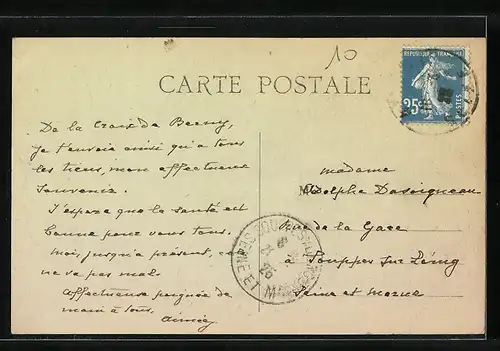 10
REPUBLIQUE FRANÇAISE
25c
POSTES
CARTE POSTALE
De la Croix de Berny,
je t'envoie ainsi qu'a tous
les tiens, mon affectueux
souvenir.
J'espere que la santé est
bonne pour vous tous.
Moi, jusqu'a présent, ça
ne va pas mal.
Affectueuse poignée de
main à tous.
Aimée
Madame
Adolphe Dasoigneau
Rue de la Gare
à Souppes sur Loing
Seine et Marne
SOUPPES
SEINE ET M
26